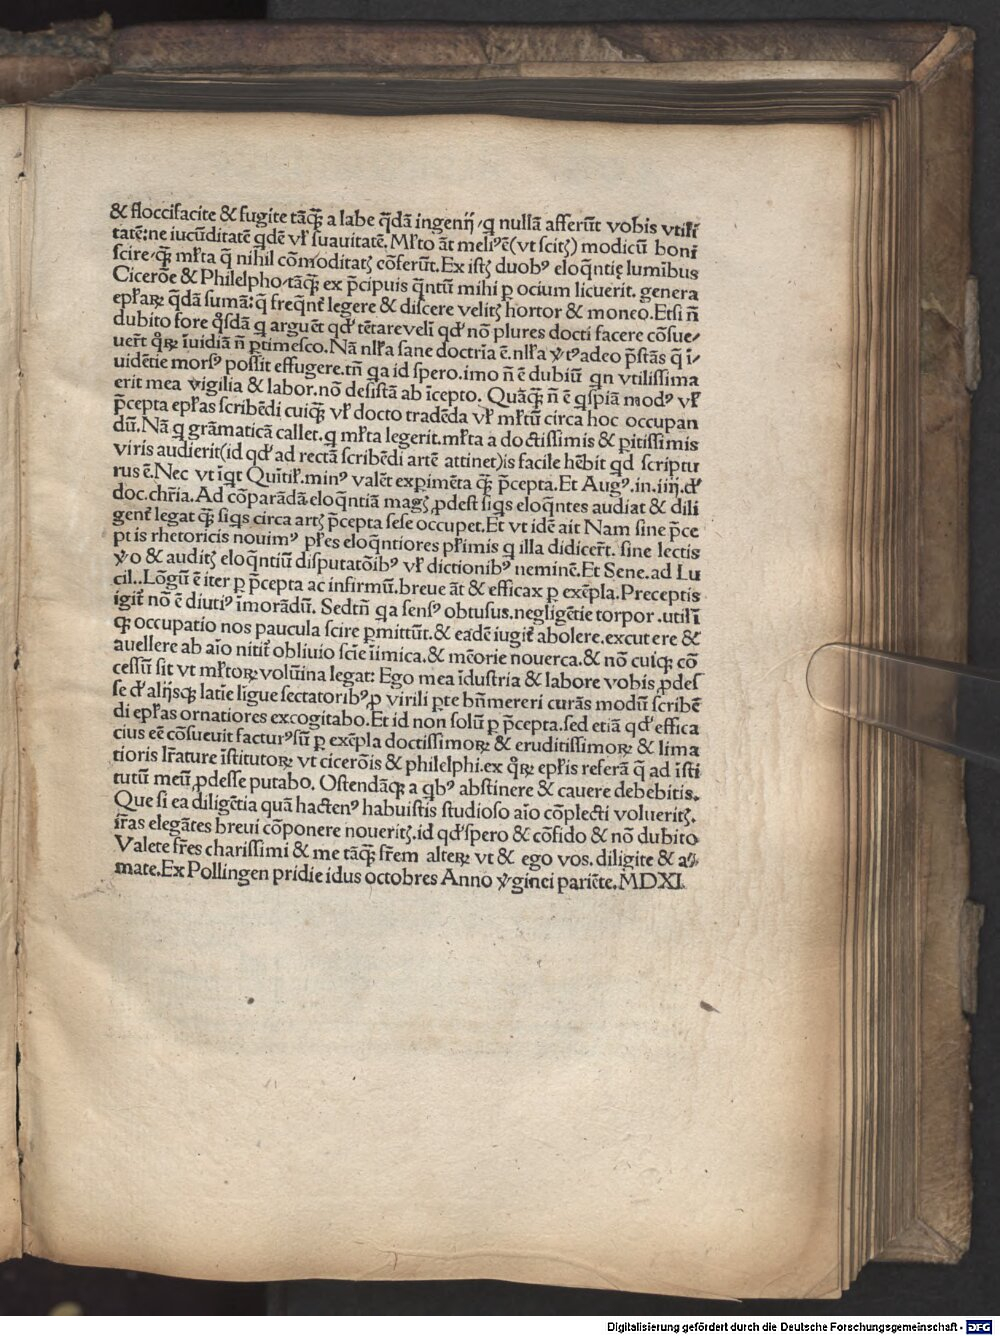 & floccifacite & fugite tāq̄ꝫ a labe q̄dā ingenij/q nullā afferūt vobis vtili
tatē:ne iucūditatē qdē vł suauitatē. Młto āt meliꝰē(vt scitꝭ) modicū boni
scire/q̄ꝫ młta q̄ nihil cōmoditatꝭ cōferūt. Ex istꝭ duobꝰ eloq̄ntię lumibus
Cicerōe & Philelpho/tāq̄ꝫ ex p̄cipuis q̄ntū mihi ꝑ ocium licuerit. genera
epłaꝝ q̄dā sumā: q̄ freq̄nt̄ legere & discere velitꝭ hortor & moneo. Etsi n̄
dubito fore q̊sdā q arguēt qd' tētare veli qd' nō plures docti facere cōsue/
uert̄ q̊ꝝ īuidiā n̄ ꝑtimesco. Nā nłła sane doctrīa ē. nłła v̊tꝰadeo p̄stās q̄ ī/
uidētie morsꝰ possit effugere. tn̄ qa id spero. imo n̄ ē dubiū qn vtilissima
erit mea vigilia & labor. nō desistā ab īcepto. Quāq̄ꝫ n̄ ē qspiā modꝰ vł
p̄cepta epłas scribēdi cuiq̄ꝫ vł docto tradēda vł młtū circa hoc occupan
dū. Nā q grāmaticā callet. q młta legerit. młta a doctissimis & ꝑitissimis
viris audierit(id qd' ad rectā scribēdi artē attinet)is facile hēbit qd scriptu
rus ē. Nec vt īqt Quītił. minꝰ valēt exꝑimēta q̄ꝫ p̄cepta. Et Augꝰ. in. iiij. d'
doc. chr̄ia. Ad cōparādā eloq̄ntiā magꝭ ꝓdest siqs eloq̄ntes audiat & dili
gent̄ legat q̄ꝫ siqs circa artꝭ p̄cepta sese occupet. Et vt idē ait Nam sine p̄ce
ptis rhetoricis nouimꝰ płes eloq̄ntiores płimis q illa didicert̄. sine lectis
v̊o & auditꝭ eloq̄ntiū disputatōibꝰ vł dictionibꝰ neminē. Et Sene. ad Lu
cil.. Lōgū ē iter ꝑ p̄cepta ac infirmū. breue āt & efficax ꝑ exēpla. Preceptis
igit̄ nō ē diutiꝰ īmorādū. Sed tn̄ qa sensꝰ obtusus. negligētie torpor . utili
qꝫ occupatio nos paucula scire ꝑmittūt. & eadē iugit̄ abolere. excutere &
auellere ab aīo nitit̄ obliuio scīe īimica. & mēorie nouerca. & nō cuiqꝫ cō
cessū sit vt młtoꝝ volūina legat: Ego mea īdustria & labore vobis ꝓdes
se d' alijsqꝫ latie ligue sectatoribꝰ, ꝓ virili ꝑte bn̄mereri curās modū scribē
di epłas ornatiores excogitabo. Et id non solū ꝑ p̄cepta. sed etiā qd' effica
cius eē cōsueuit facturꝰ sū ꝑ exēpla doctissimoꝝ & eruditissimoꝝ & lima
tioris lr̄ature īstitutoꝝ vt cicerōis & philelphi. ex q̊ꝝ epłis referā q̄ ad īsti
tutū meū ꝓdesse putabo. Ostendāqꝫ a qbꝰ abstinere & cauere debebitis.
Que si ea diligētia quā hactenꝰ habuistis studioso aīo cōplecti volueritꝭ.
lr̄as elegātes breui cōponere noueritꝭ. id qd' spero & cōfido & nō dubito
Valete fr̄es charissimi & me tāq̄ꝫ fr̄em alteꝝ vt & ego vos. diligite & a
mate. Ex Pollingen pridie idus octobres Anno v̊ginei pariēte. MDXI.
Digitalisierung gefördert durch die Deutsche Forschungsgemeinschaft - DFG